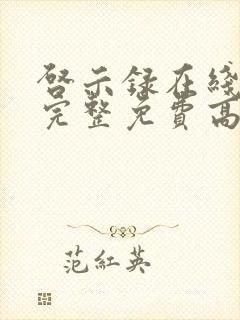 啓示録在綫
完整免費高
范紅英